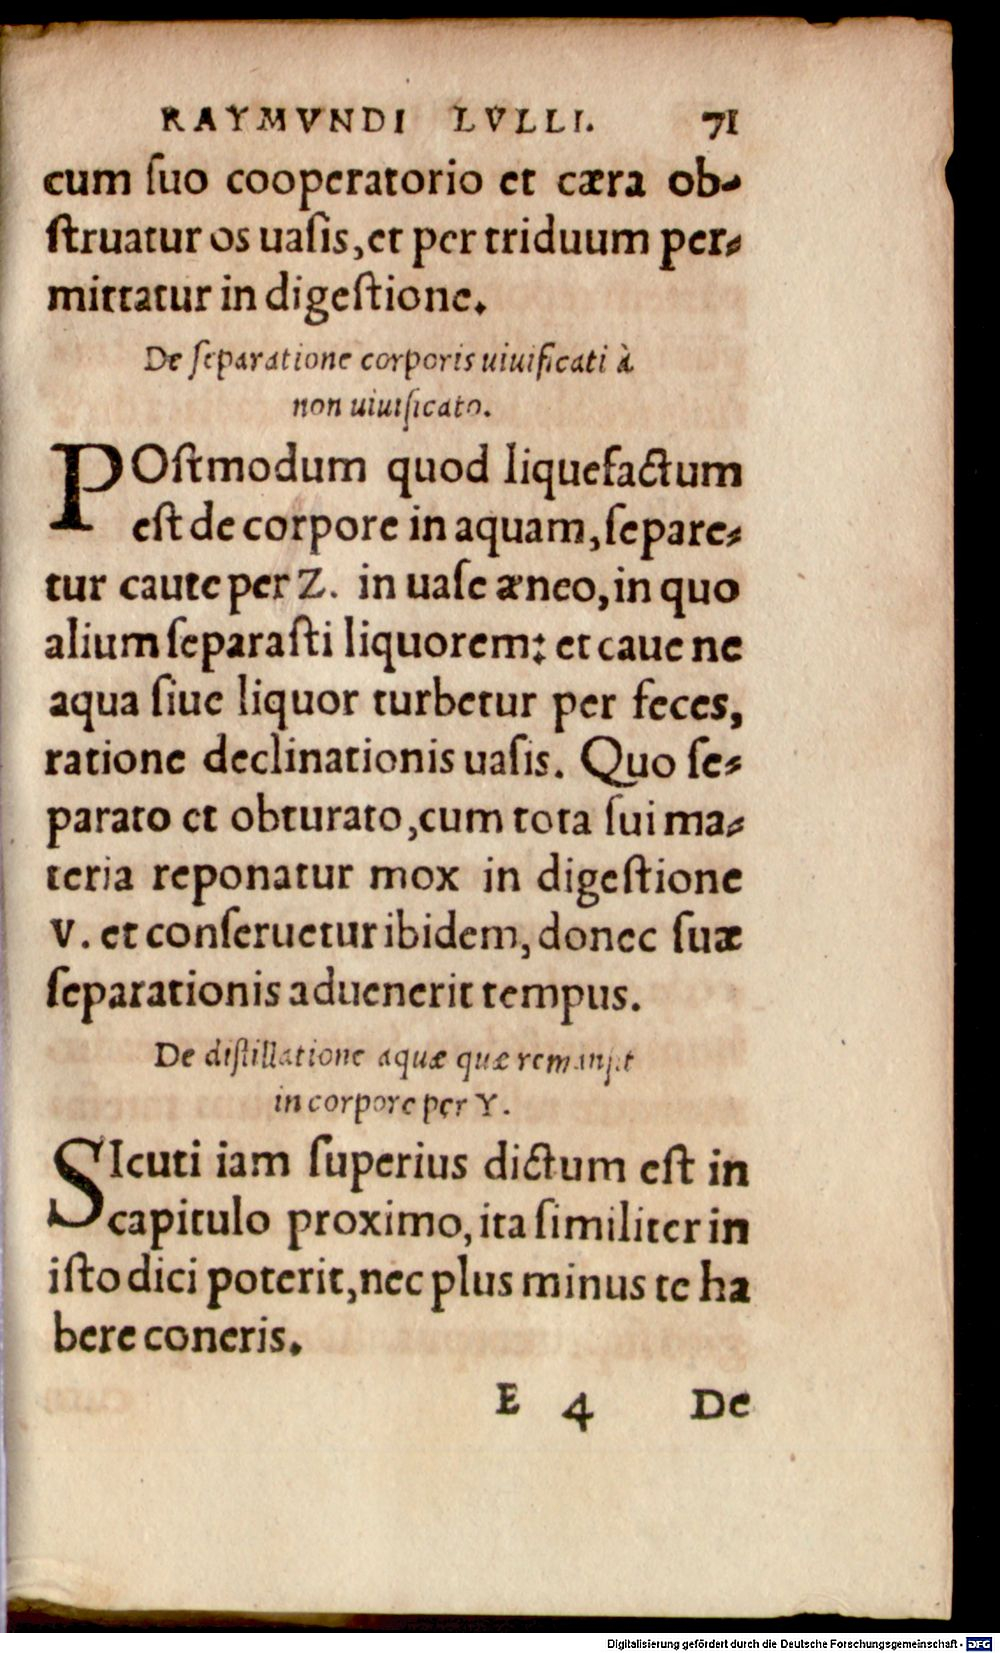 RAYMVNDI LVLLI. 71
cum ſuo cooperatorio et cæra ob-
ſtruatur os uaſis, et per triduum per-
mittatur in digeſtione.
De ſeparatione corporis uiuificati à
non uiuificato.
POſtmodum quod liquefactum
eſt de corpore in aquam, ſepare-
tur caute per Z. in uaſe æneo, in quo
alium ſeparaſti liquorem: et caue ne
aqua ſiue liquor turbetur per feces,
ratione declinationis uaſis. Quo ſe-
parato et obturato, cum tota ſui ma-
teria reponatur mox in digeſtione
V. et conſeruetur ibidem, donec ſuæ
ſeparationis aduenerit tempus.
De diſtillatione aquæ quæ remanſit
in corpore per Y.
SIcuti iam ſuperius dictum eſt in
capitulo proximo, ita ſimiliter in
iſto dici poterit, nec plus minus te ha
bere coneris.
E 4 De
Digitalisierung gefördert durch die Deutsche Forschungsgemeinschaft - DFG